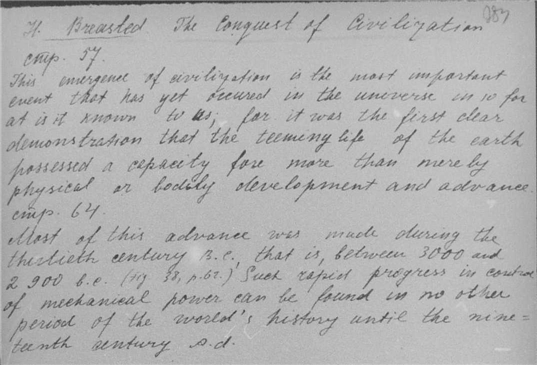 H. Breasted The Conquest of Civilization
стр. 57.
This emergence of civilization is the most important
event that has yet occured in the universe in so far
at is it known to us; for it was the first clear
demonstration that the teeming life of the earth
possessed a capacity fore more than mereby
physical or bodily development and advance.
стр. 64.
Most of this advance was made during the
thirtieth century B.C., that is, between 3000 and
2 900 b.c. (fig. 38, p. 62.) Such rapid progress in control
of mechanical power can be found in no other
period of the world's history until the nine=
teenth century a.d.